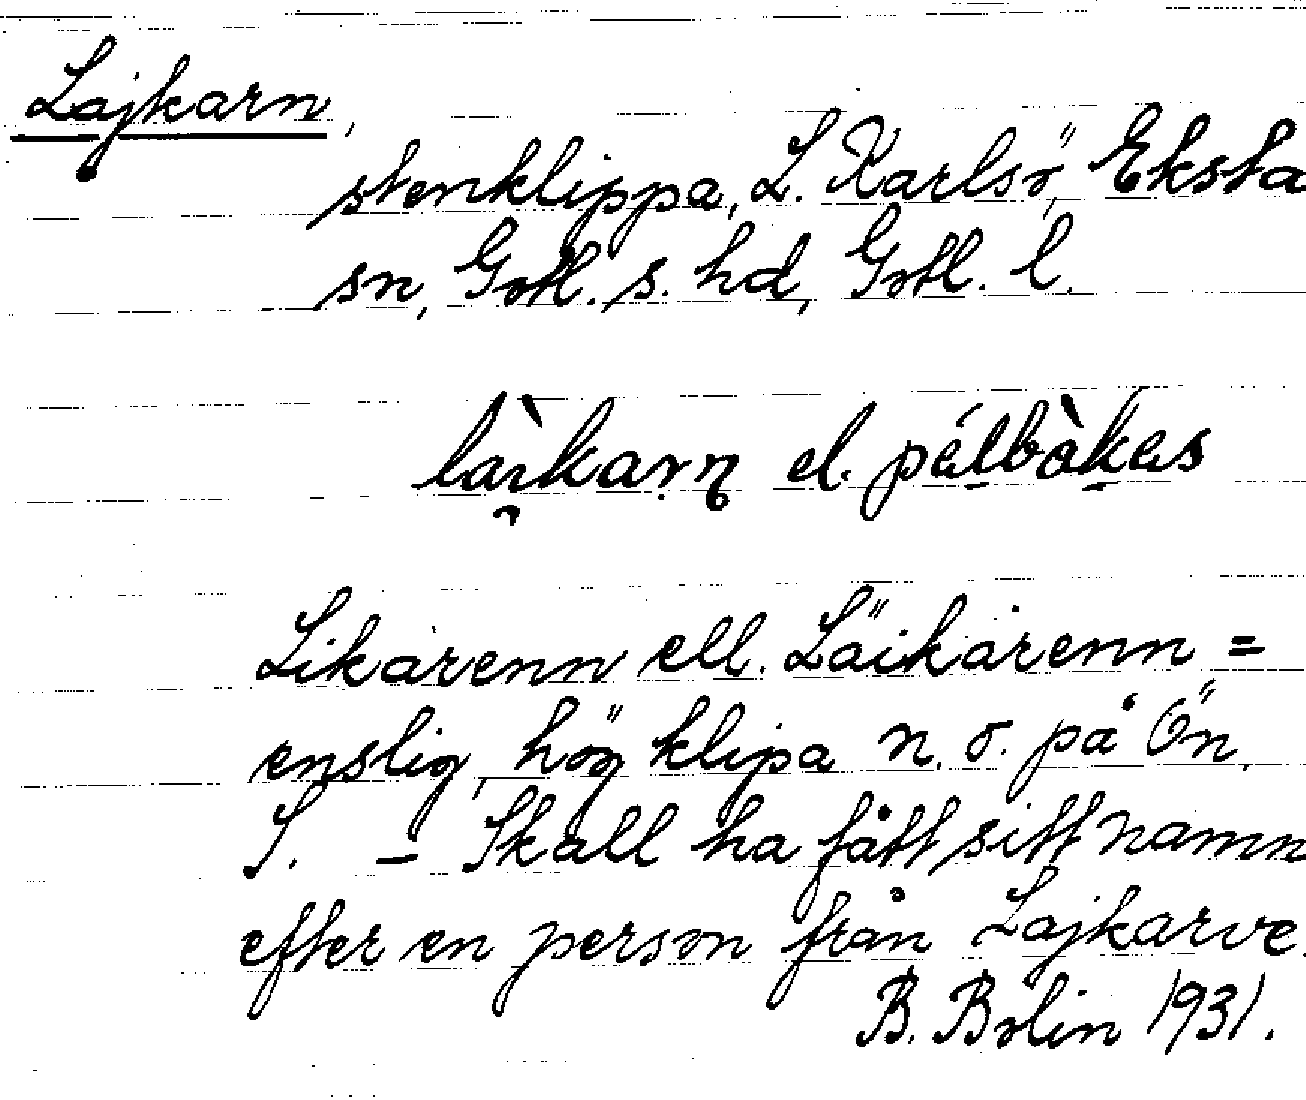 Lajkarn,
stenklippa, L. Karlsö, Eksta
sn, Gotl. s. hd, Gotl. l.
el.
Likarenn ell. Läikarenn =
enslig, hög klipa n. o. på Ön.
S. – Skall ha fått sitt namn
efter en person från Lajkarve.
B. Bolin 1931.